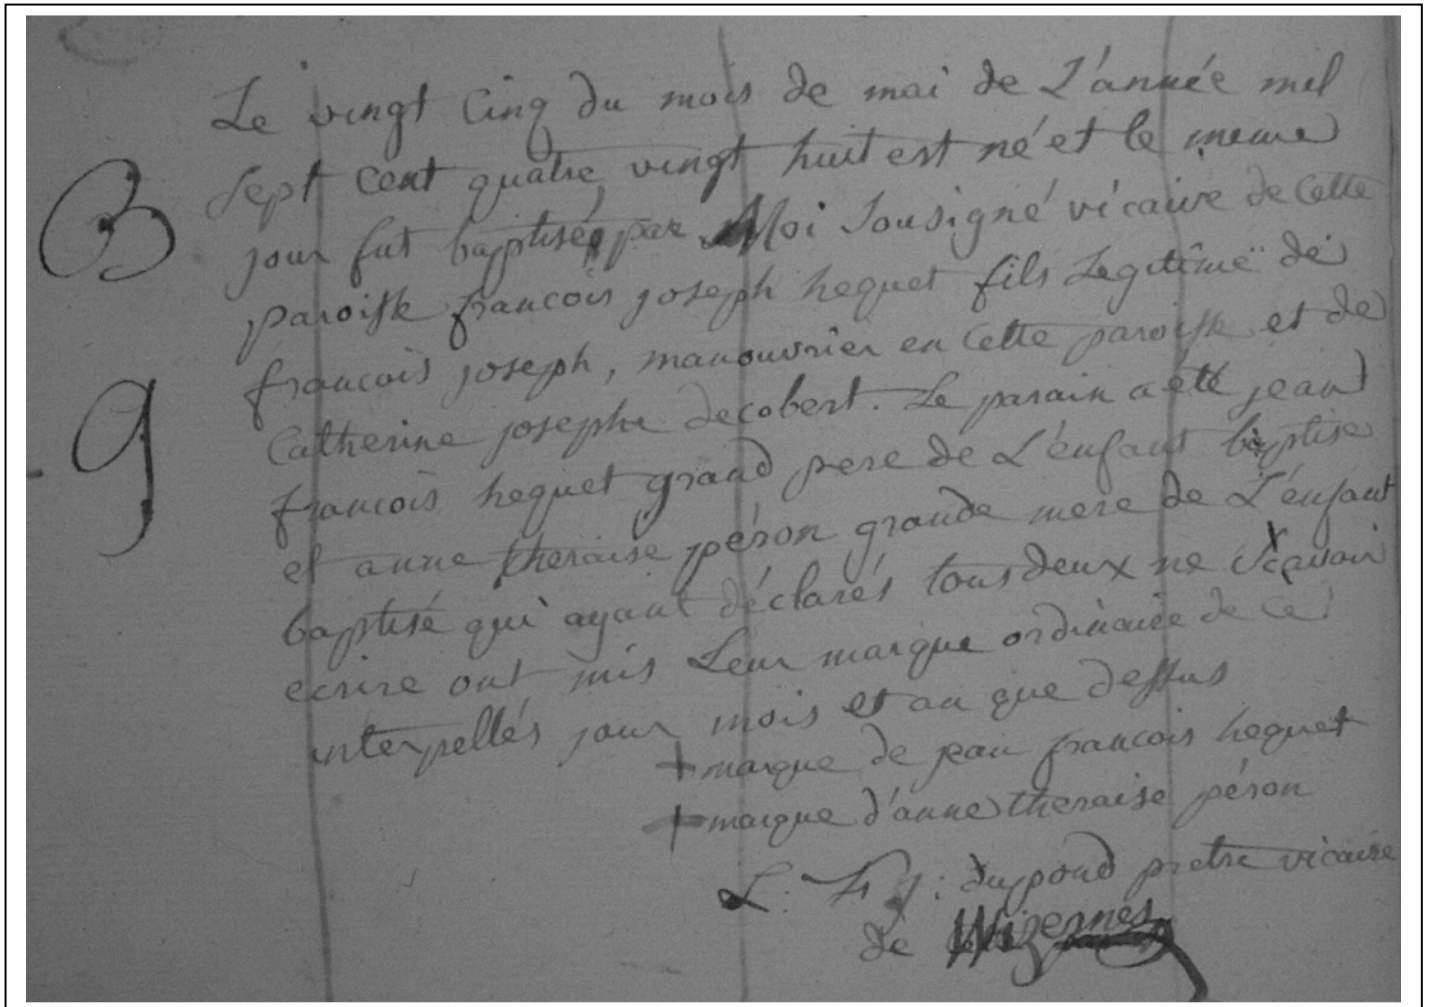 B
9
Le vingt Cinq du mois de mai de L'année mil
Sept cent quatre vingt huit est né et le meme
jour fut baptisé par Moi Sousigné vicaire de Cette
paroisse francois joseph hequet fils Legitime de
francois joseph, manouvrier en Cette paroisse et de
Catherine josephe decobert. Le parain a eté jean
francois hequet grand pere de L'enfant baptise
et anne theraise péron grande mere de L'enfant
baptisé qui ayant déclarés tous deux ne Scavoir
ecrire ont mis Leur marque ordinaire de Ce
interpellés jour mois et an que dessus
+ marque de jean francois hequet
+ marque d'anne theraise péron
L: F: j: dupond pretre vicaire
de Wizernes